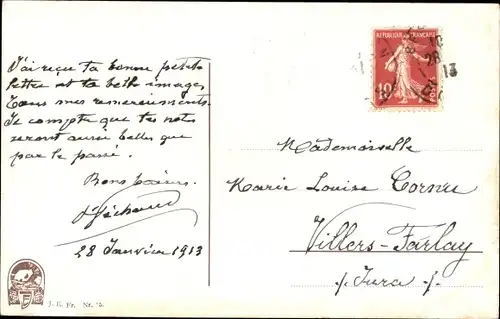 J'ai reçu ta bonne petite
lettre et ta belle image.
Tous mes remerciements.
Je compte que tes notes
seront aussi belles que
par le passé.
Bons baisers.
28 Janvier 1913
REPUBLIQUE FRANÇAISE
10
28
13
Mademoiselle
Marie Louise Cornu
Villers-Farlay
Jura